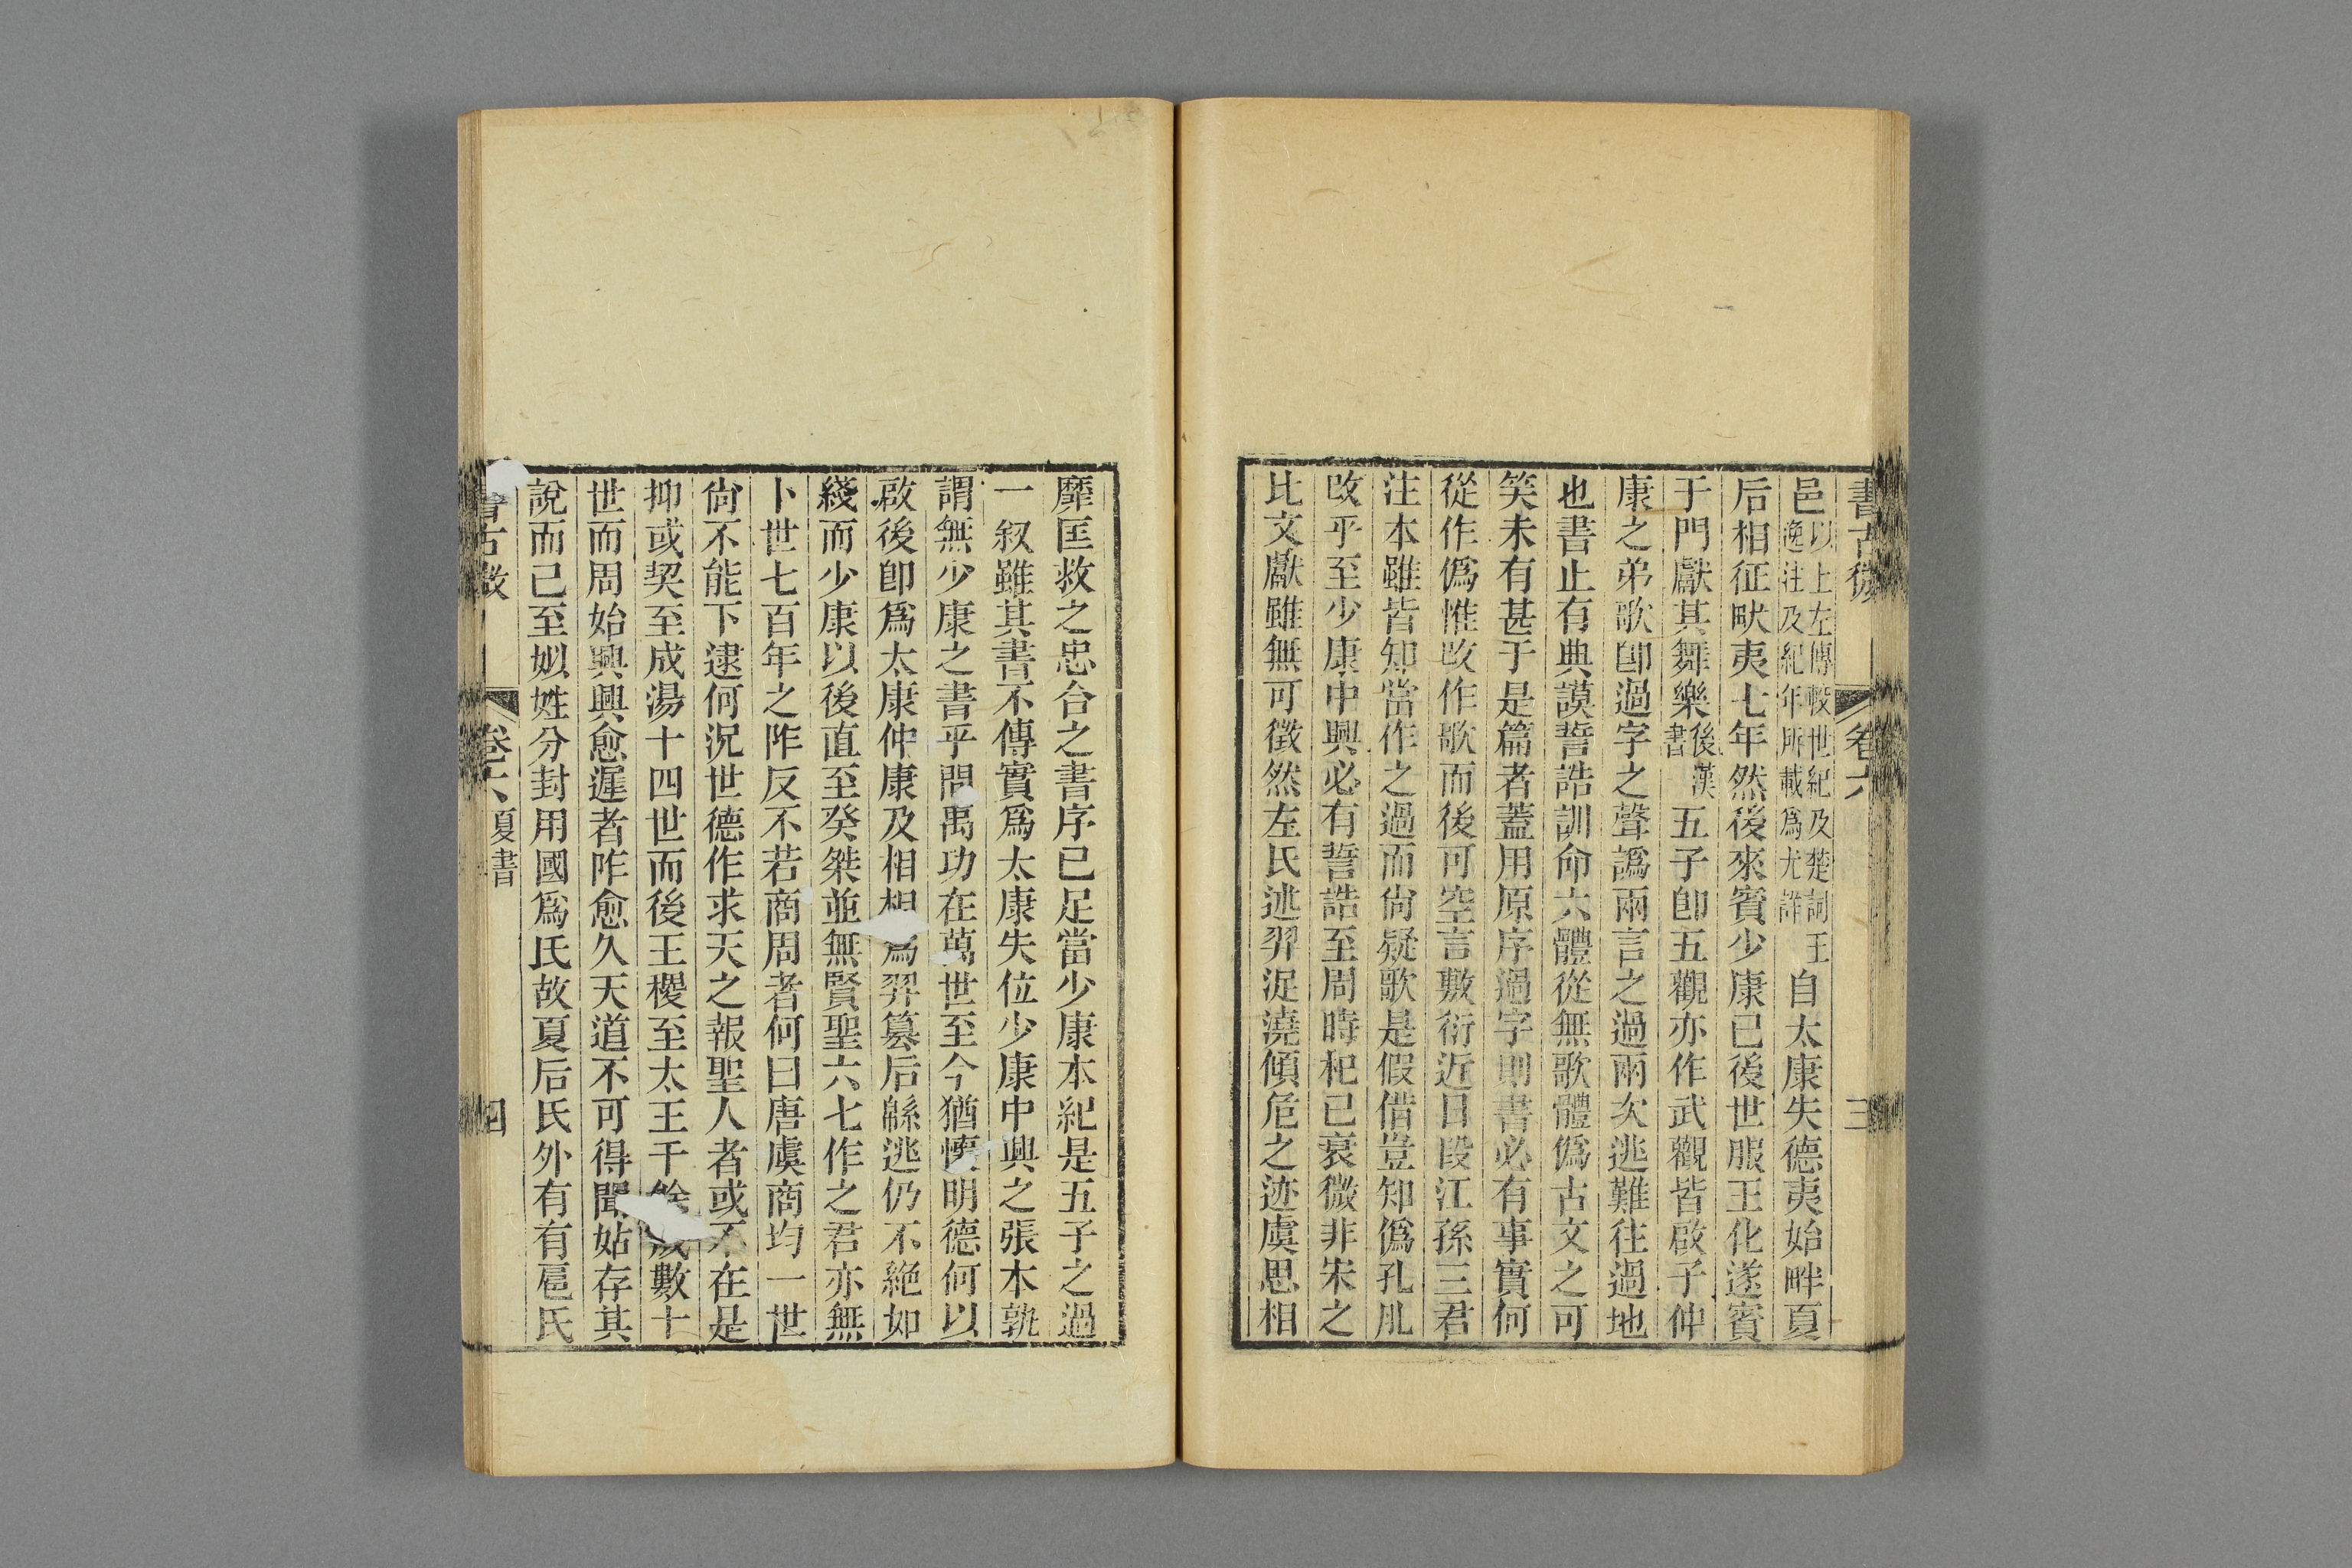 書古微 卷六 三
邑以上左傳較世紀及楚詞王逸注及紀年所載爲尤詳自太康失德夷始畔夏
后相征畎夷七年然後來賓少康已後世服王化遂賓
于門獻其舞樂後漢書五子卽五觀亦作武觀皆啟子仲
康之弟歌卽過字之聲譌兩言之過兩次逃難往過地
也書止有典謨誓誥訓命六體從無歌體僞古文之可
笑未有甚于是篇者蓋用原序過字則書必有事實何
從作僞惟改作歌而後可空言敷衍近日段江孫三君
注本雖皆知當作之過而尙疑歌是假借豈知僞孔凡
改乎至少康中興必有誓誥至周時杞已衰微非宋之
比文獻雖無可徵然左氏述羿浞澆傾危之迹虞思相
靡匡救之忠合之書序已足當少康本紀是五子之過
一叙雖其書不傳實爲太康失位少康中興之張本孰
謂無少康之書乎問禹功在萬世至今猶懷明德何以
啟後卽爲太康仲康及相相爲羿篡后緜逃仍不絕如
綫而少康以後直至癸桀並無賢聖六七作之君亦無
卜世七百年之阼反不若商周者何曰唐虞商均一世
尙不能下逮何況世德作求天之報聖人者或不在是
抑或契至成湯十四世而後王稷至太王千餘歲數十
世而周始興興愈遲者阼愈久天道不可得聞姑存其
說而已至姒姓分封用國爲氏故夏后氏外有有扈氏
書古微 卷六夏書 四